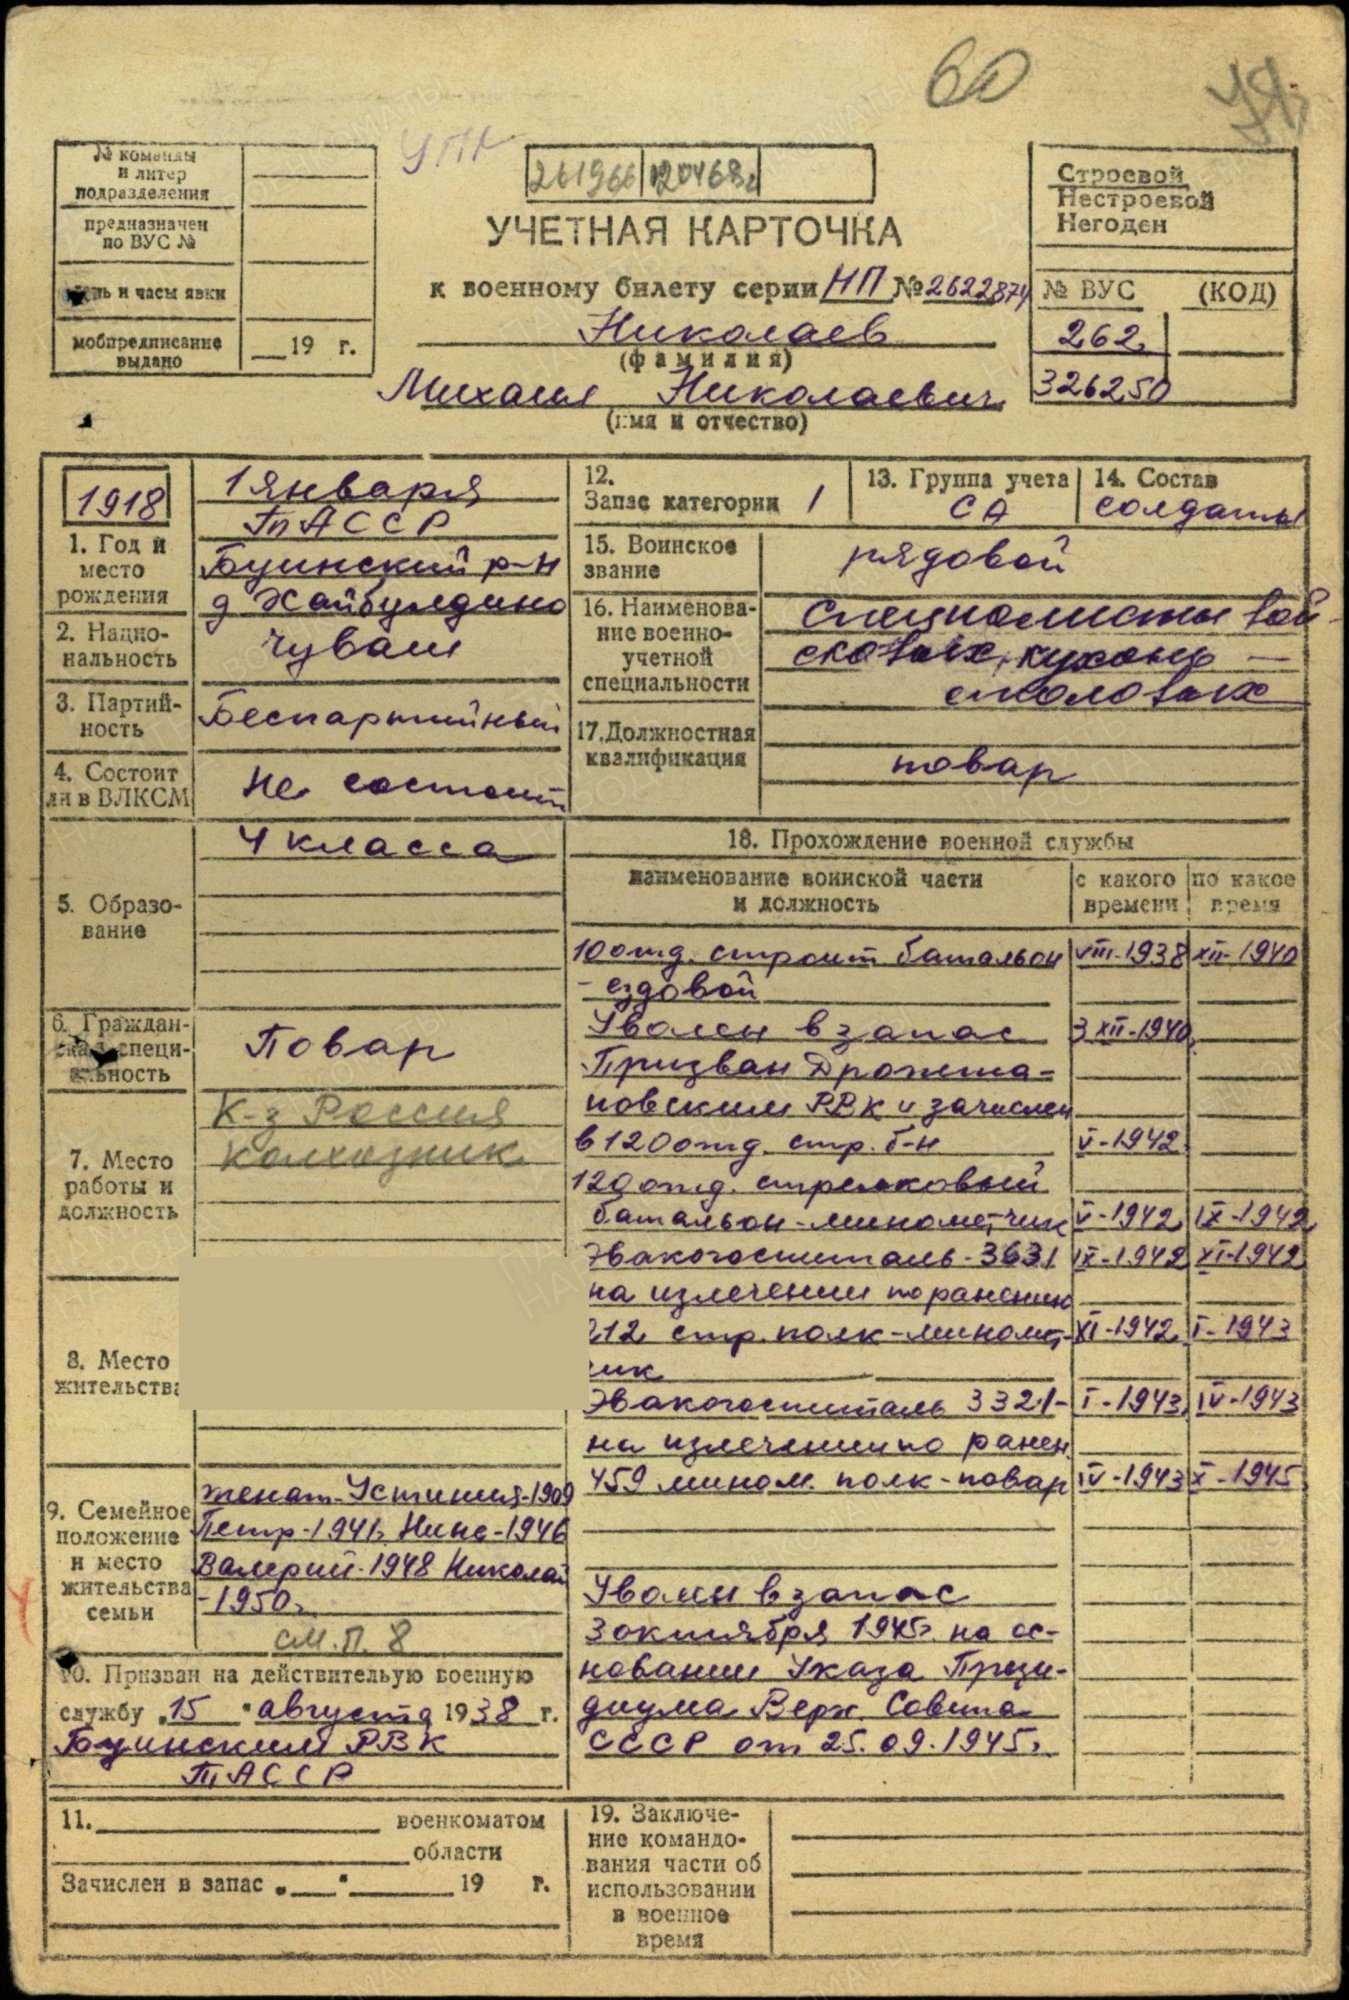 60
УПК
№ команды
и литер
подразделения
предназначен
по ВУС №
день и часы явки
мобпредписание
выдано
19 г.
261966 120468г
УЧЕТНАЯ КАРТОЧКА
к военному билету серии НП № 2622874
Николаев
(фамилия)
Михаил Николаевич
(имя и отчество)
Строевой
Нестроевой
Негоден
№ ВУС (КОД)
262
326250
1918
1. Год и
место
рождения
1 января
ТАССР
Буинский р-н
д Хайбулдино
2. Нацио-
нальность
чуваш
3. Партий-
ность
Беспартийный
4. Состоит
ли в ВЛКСМ
Не состоит
5. Образо-
вание
4 класса
6. Граждан-
ская специ-
альность
Повар
7. Место
работы и
должность
К-з Россия
колхозник
8. Место
жительства
9. Семейное
положение
и место
жительства
семьи
женат-Устиния-1909
Петр-1941г. Нина-1946
Валерий-1948 Николай
-1950г.
см. п. 8
10. Призван на действительную военную
службу „15" августа 1938 г.
Буинским РВК
ТАССР
11. военкоматом
области
Зачислен в запас „ " 19 г.
12.
Запас категории 1
13. Группа учета
СА
14. Состав
солдаты
15. Воинское
звание
рядовой
16. Наименова-
ние военно-
учетной
специальности
Специалисты вой-
сковых кухонь —
столовых
17. Должностная
квалификация
повар
18. Прохождение военной службы
наименование воинской части
и должность
с какого
времени
по какое
время
10 отд. строит батальон VIII-1938 XII-1940
- ездовой
Уволен в запас 3 XII-1940г.
Призван Дрожжа-
новским РВК и зачислен
в 120 отд. стр. б-н V-1942
120 отд. стрелковый
батальон-минометчик V-1942 IX-1942
Эвакогоспиталь-3631 IX-1942 XI-1942
на излечении по ранению
212 стр. полк-миномет- XI-1942 I-1943
чик
Эвакогоспиталь 3321- I-1943 IV-1943
на излечении по ранен.
459 мином. полк-повар IV-1943 X-1945
Уволен в запас
3 октября 1945г. на ос-
новании Указа Прези-
диума Верх. Совета
СССР от 25.09.1945г.
19. Заключе-
ние командо-
вания части об
использовании
в военное
время